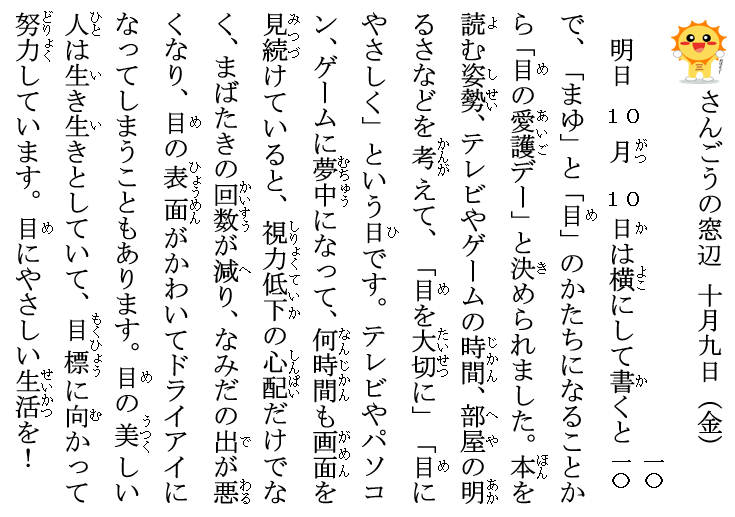 さんごうの窓辺 十月九日（金）
明日 10月 10日は横にして書くと 一〇 一〇
で、「まゆ」と「目」のかたちになることか
ら「目の愛護デー」と決められました。本を
読む姿勢、テレビやゲームの時間、部屋の明
るさなどを考えて、「目を大切に」「目に
やさしく」という日です。テレビやパソコ
ン、ゲームに夢中になって、何時間も画面を
見続けていると、視力低下の心配だけでな
く、まばたきの回数が減り、なみだの出が悪
くなり、目の表面がかわいてドライアイに
なってしまうこともあります。目の美しい
人は生き生きとしていて、目標に向かって
努力しています。目にやさしい生活を！